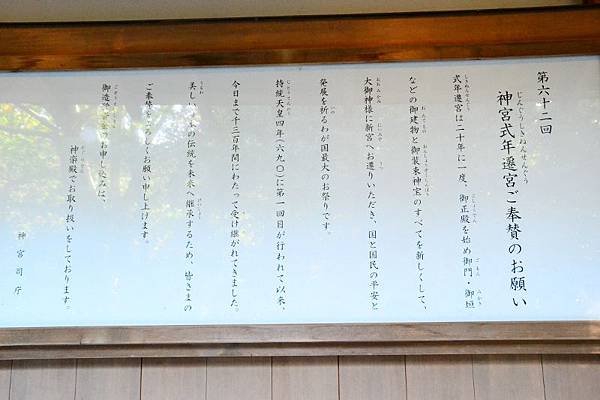 第六十二回
神宮式年遷宮ご奉賛のお願い
じんぐうしきねんせんぐう
式年遷宮は二十年に一度、御正殿を始め御門・御垣
などの御建物と御装束神宝のすべてを新しくして、
大御神様に新宮へお遷りいただき、国と国民の平安と
発展を祈るわが国最大のお祭りです。
持統天皇四年(六九〇)に第一回目が行われて以来、
今日まで千三百年間にわたって受け継がれてきました。
美しい日本の伝統を未来へ継承するため、皆さまの
ご奉賛をよろしくお願い申し上げます。
お申し込みは、
神楽殿でお取り扱いをしております。
神宮司庁